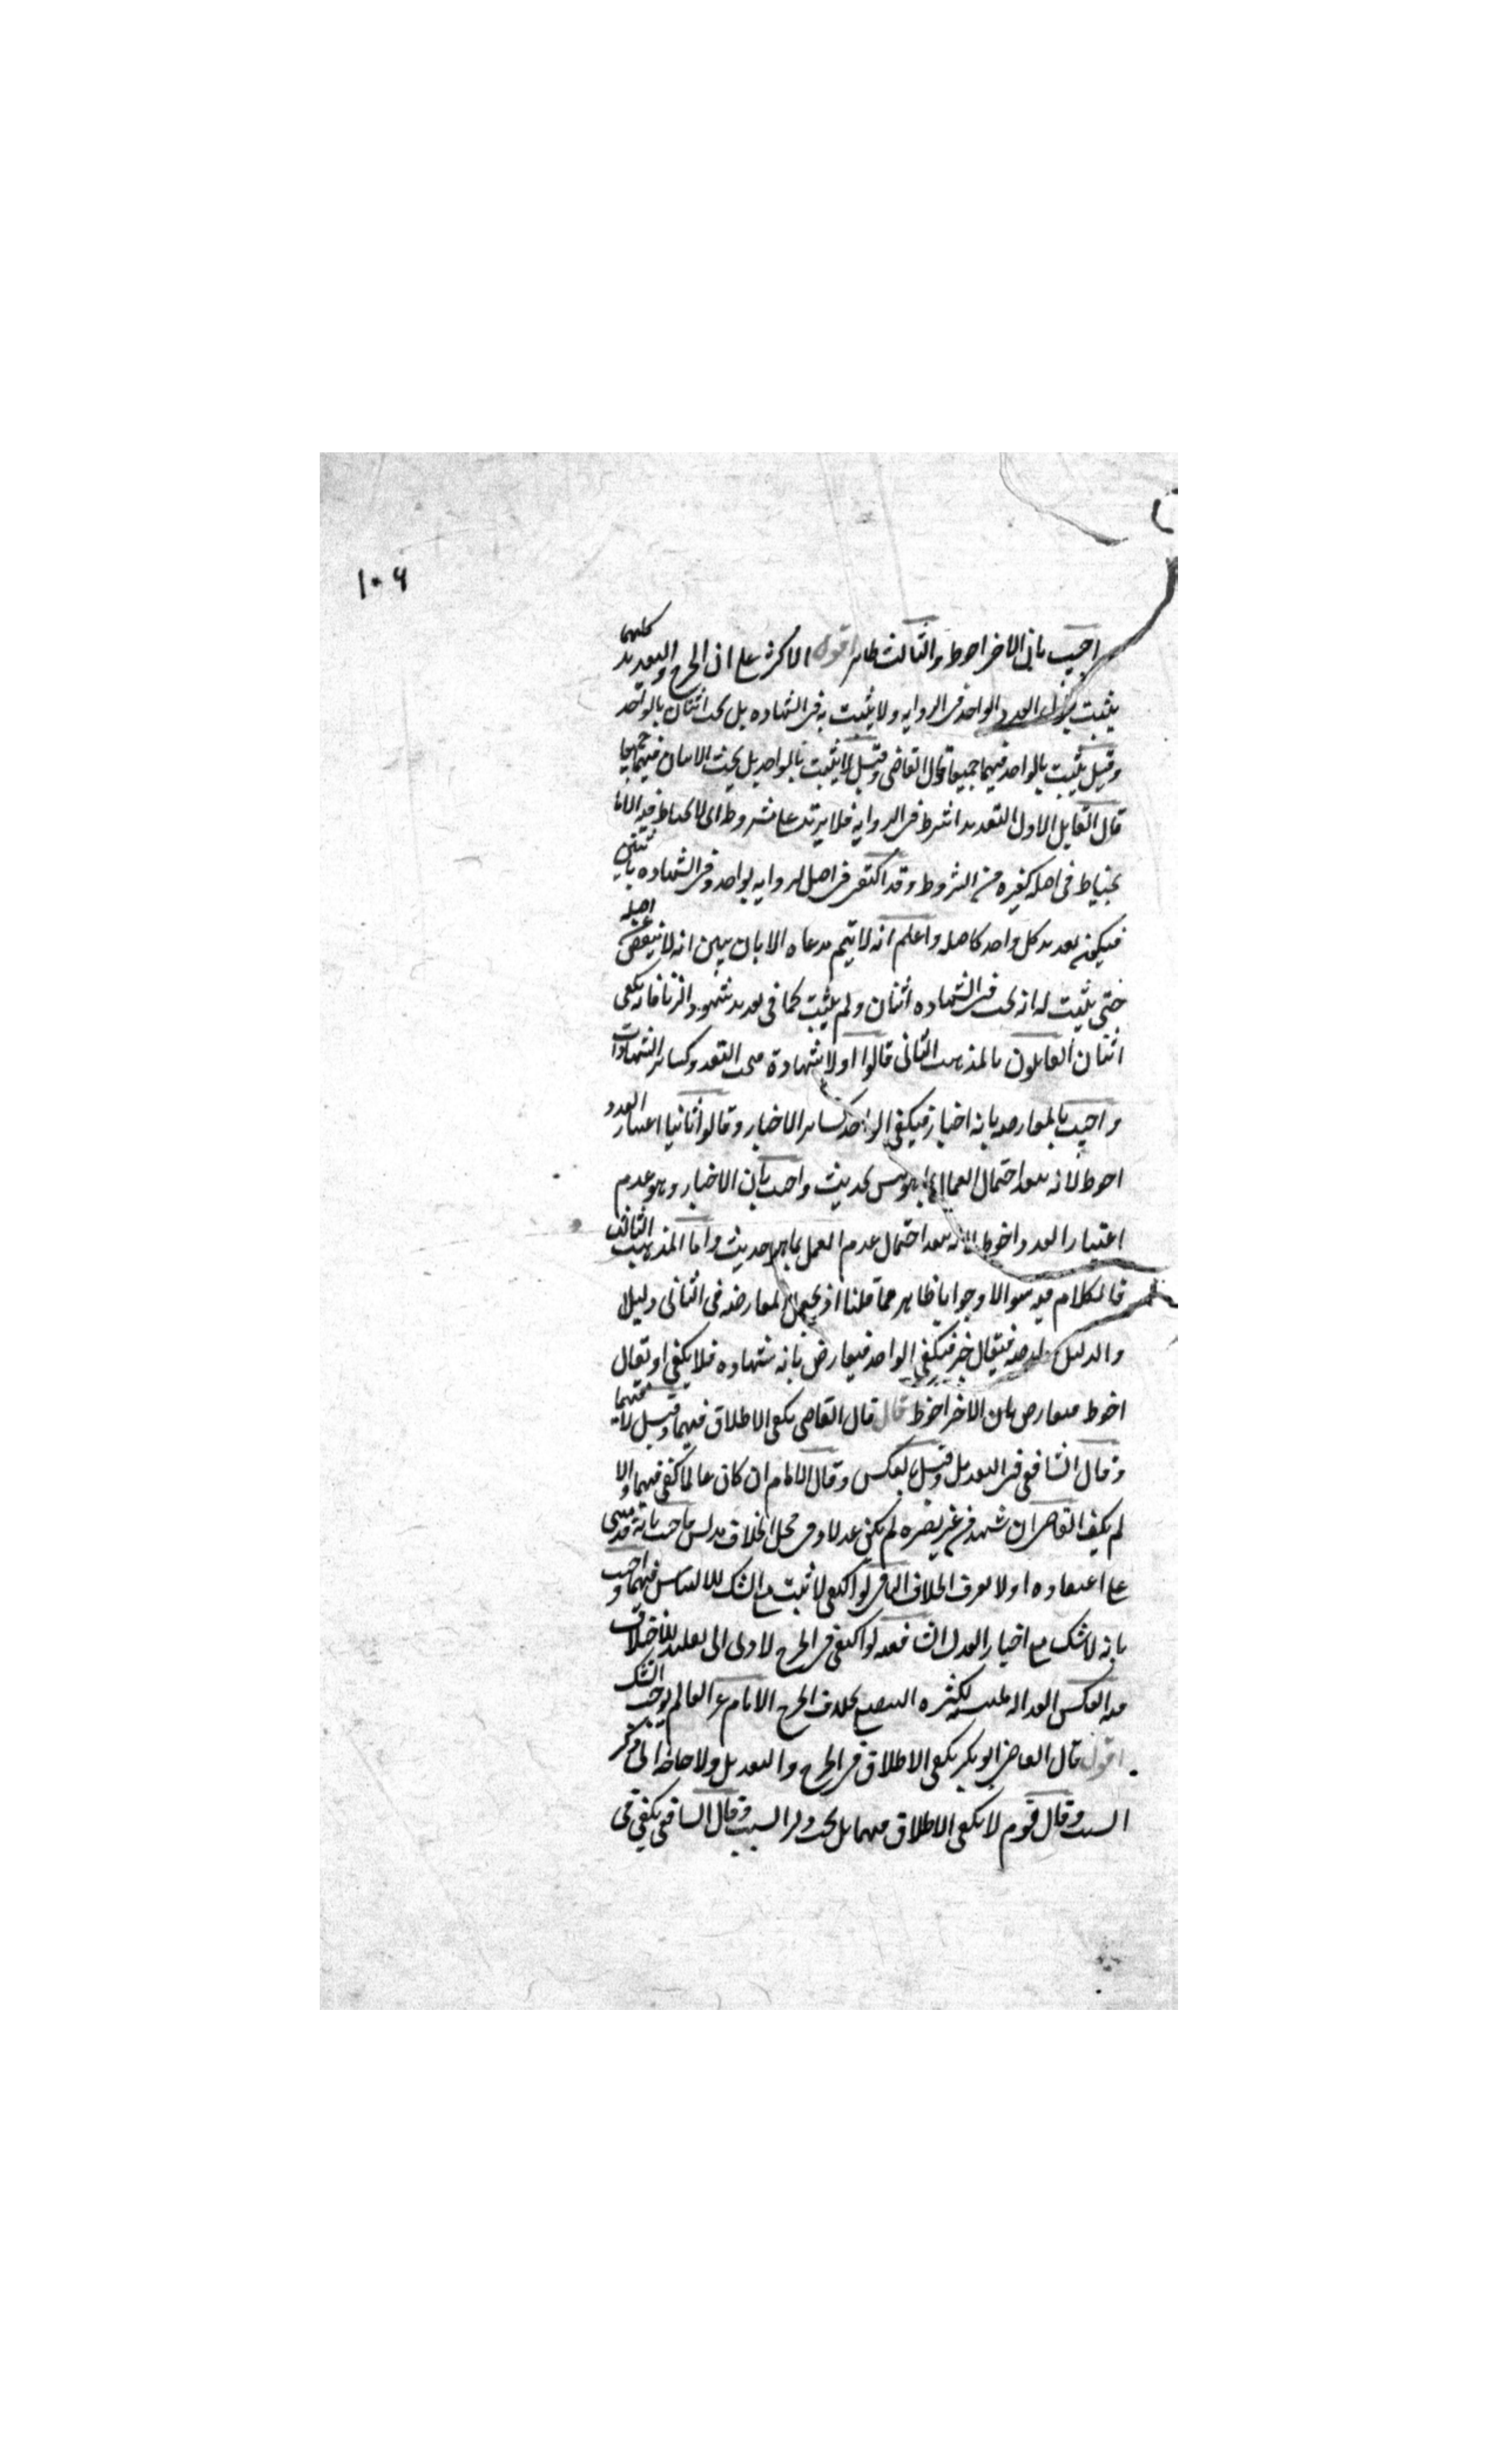 ١٠٦
اجيب بان الاخر احوط والثالث ظاهر اقول الاكثر على ان الجرح والتعديل كليهما
يثبت العدد الواحد فى الروايه ولا يثبت به فى الشهاده بل يجب اثنان بالواحد
وقيل يثبت بالواحد فيهما جميعا قال القاضى وقيل لا يثبت بالواحد بل يجب الاثنان فيهما جميعا
قال القايل الاول التعديل شرط فى الروايه فلا يزيد على مشروط اى لا يحتاط فيه الا
يحتاط فى اصله كغيره من الشروط وقد اكتفى فى اصل الروايه بواحد وفى الشهاده باثنين
فيكون تعديل كل واحد كاصله واعلم انه لا يتم مدعاه الا بان يبين انه لا ينقص عن اصله
حتى يثبت له انه يجب فى الشهاده اثنان ولم يثبت كما فى تعديل شهود الزنا فانه يكفى
اثنان القايلون بالمذهب الثانى قالوا اولا شهادة فيجب التعدد كساير الشهادات
واجيب بالمعارضه بانه اخبار فيكفى الواحد كساير الاخبار وقالوا ثانيا اعتبار العدد
احوط لانه يبعد احتمال العمل بما ليس بحديث واجيب بان الاخبار وهو عدم
اعتبار العدد احوط لانه يبعد احتمال عدم العمل بما هو حديث واما المذهب الثالث
فالكلام فيه سوالا وجوابا ظاهر مما قلنا اذ يجعل المعارضه فى الثانى دليلا
والدليل معارضه فيقال خبر فيكفى الواحد فيعارض بانه شهاده فلا يكفى او يقال
احوط فيعارض بان الاخر احوط قال قال القاضى يكفى الاطلاق فيهما وقيل لا فيهما
وقال الشافعى فى التعديل وقيل بالعكس وقال الامام ان كان عالما كفى فيهما والا
لم يكف القاضى ان شهد من غير بصيره لم يكن عدلا وفى محل الخلاف مدلس واجيب بانه قد يبنى
على اعتقاده او لا يعرف الخلاف النافى لو اكتفى لاثبت مع الشك للالتباس فيهما واجيب
بانه لا شك مع اخبار العدل الشافعيه لو اكتفى فى الجرح لادى الى تقليد للاختلاف
فيه العكس العداله ملتبسه لكثره التصنع بخلاف الجرح الامام غير العالم يوجب الشك
اقول قال القاضى ابو بكر يكفى الاطلاق فى الجرح والتعديل ولا حاجه الى ذكر
السبب وقال قوم لا يكفى الاطلاق فيهما بل يجب ذكر السبب وقال الشافعى يكفى فى